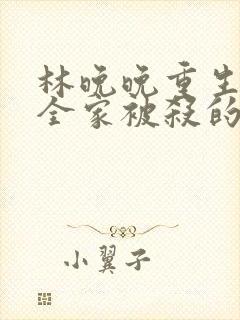 林晚晚重生
全家被殺的
小翼子